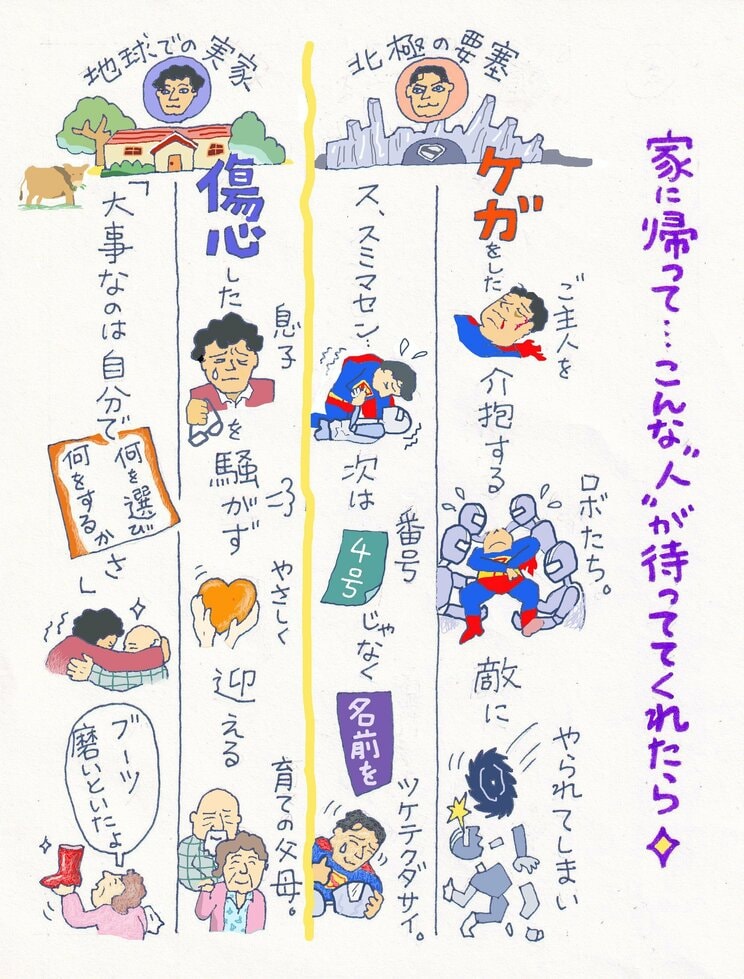 家に帰って…こんな"人"が待っててくれたら
北極の要塞
ケガをした
ご主人を
介抱する
ロボたち。
敵に
やられてしまい
ス、スミマセン…
次は
番号
4号
じゃなく
名前を
ツケテクダサイ。
地球での実家
傷心した
息子
を騒がず
やさしく
迎える
育ての父母。
「大事なのは自分で
何を選び
何をするか
さ」
ブーツ
磨いといたよ